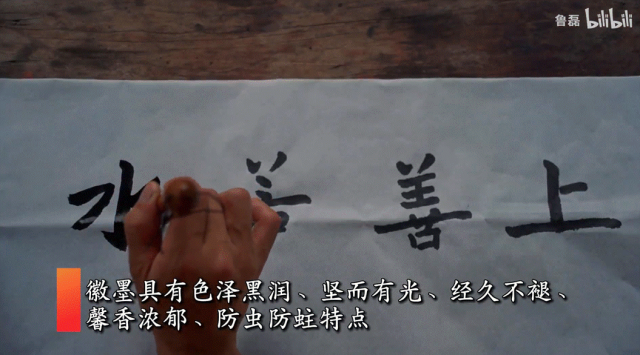 鲁磊 bilibili
上善水
徽墨具有色泽黑润、坚而有光、经久不褪、
馨香浓郁、防虫防蛀特点